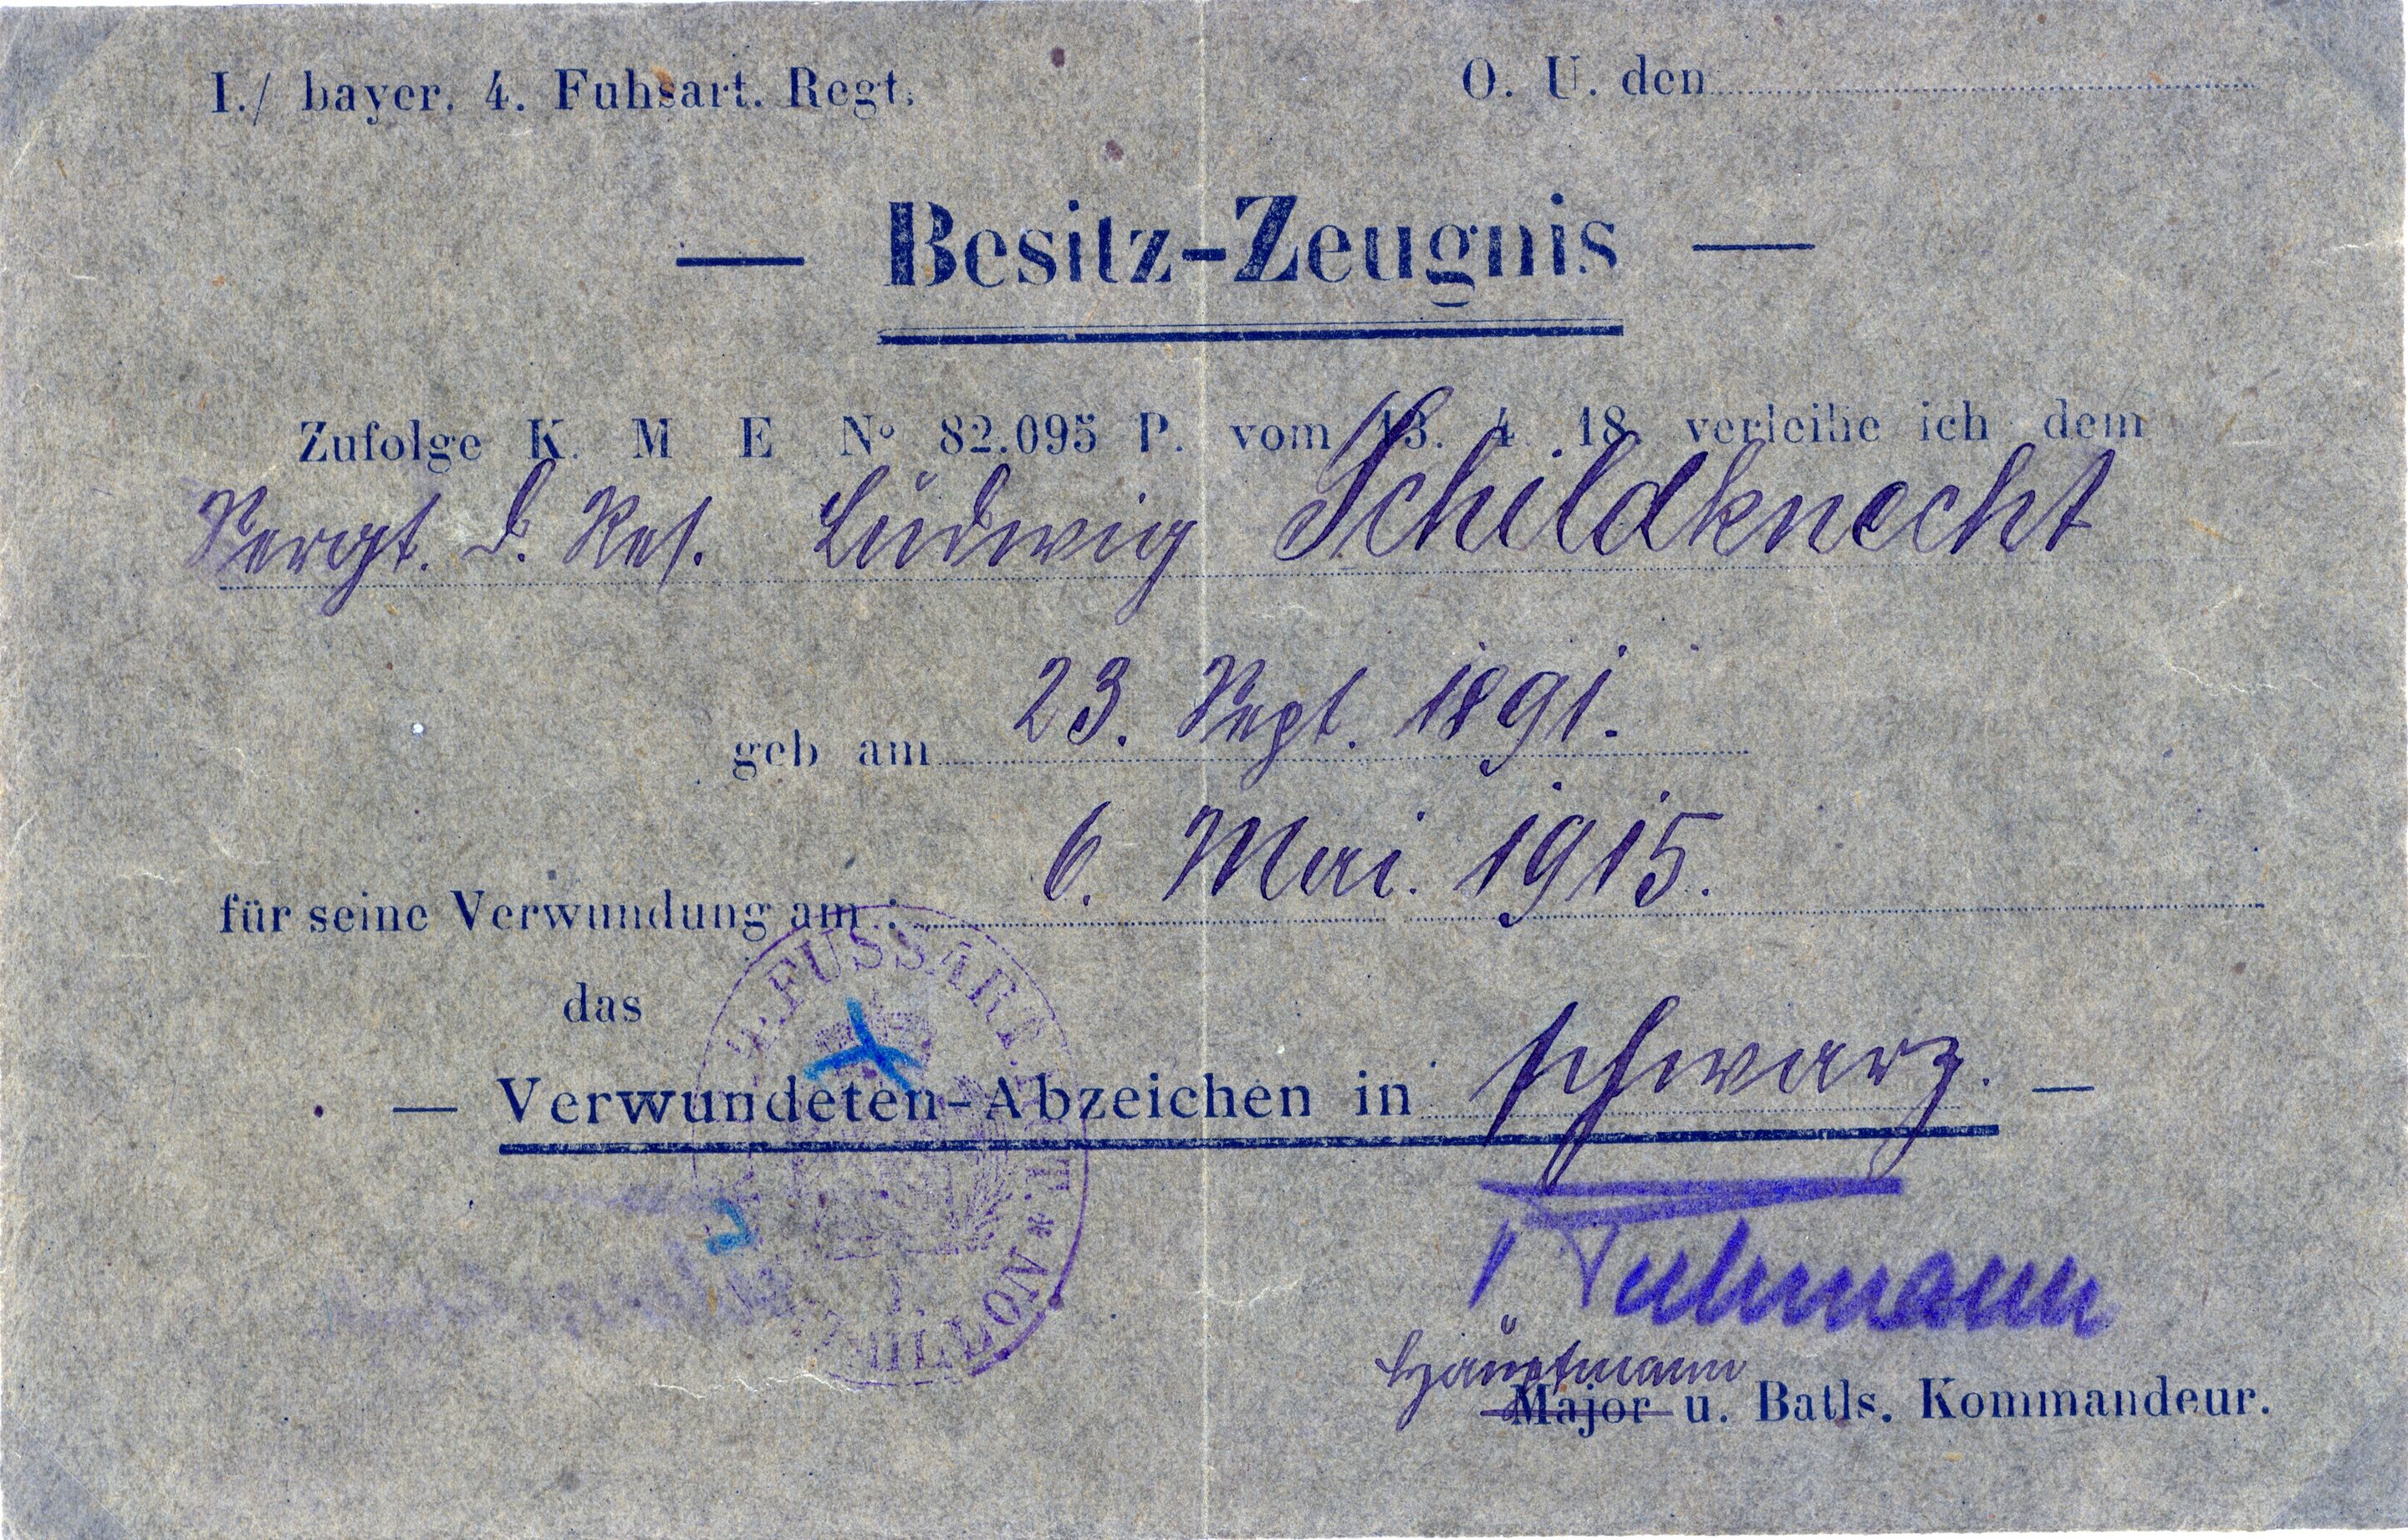 I./ bayer. 4. Fuhsart. Regt. O. U. den
— Besitz-Zeugnis —
Zufolge K. M E N° 82.095 P. vom 13. 4. 18. verleihe ich dem
Sergt. d. Res. Ludwig Schildknecht
geb am 23. Sept. 1891.
für seine Verwundung am : 6. Mai. 1915.
das
— Verwundeten-Abzeichen in schwarz. —
FUSSART
Hauptmann
Major u. Batls. Kommandeur.